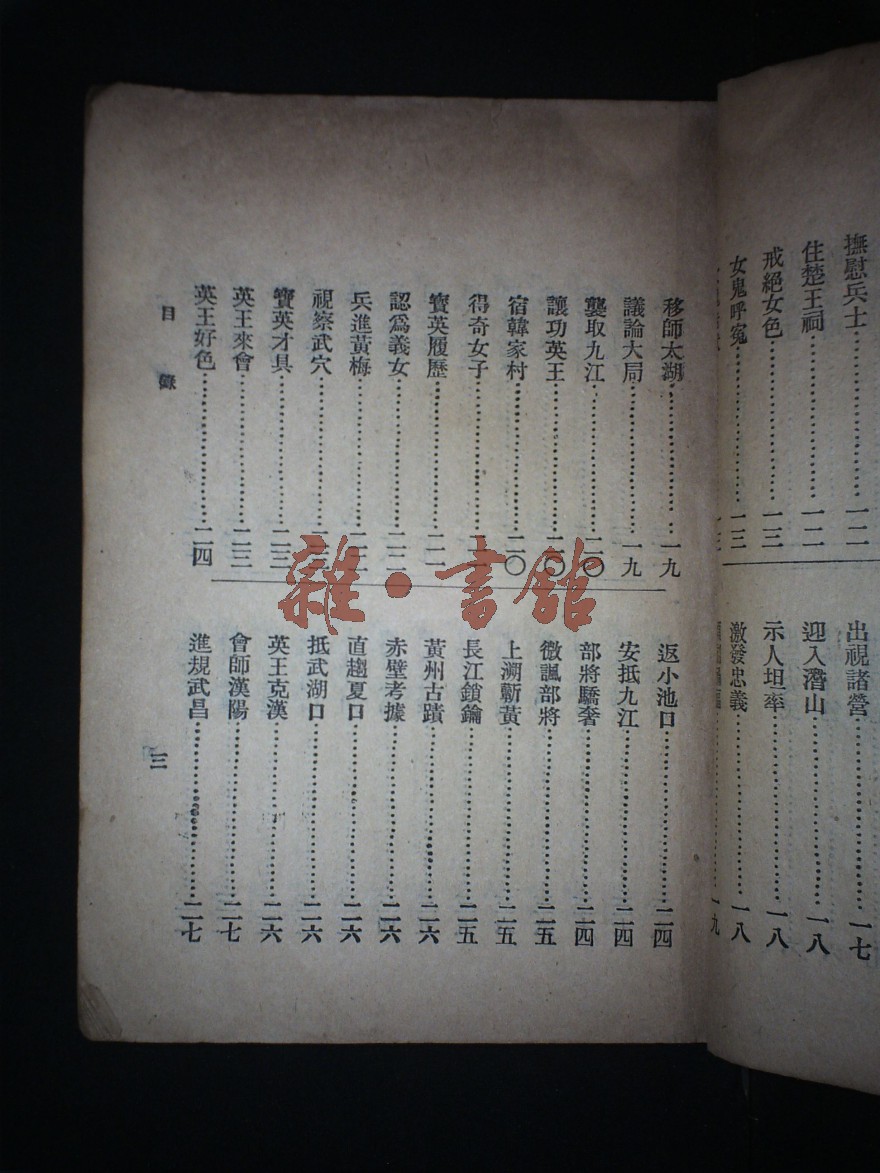 撫慰兵士⋯⋯一二
住楚王祠⋯⋯一二
戒絕女色⋯⋯一三
女鬼呼冤⋯⋯一三
出視諸營⋯⋯一七
迎入潛山⋯⋯一八
示人坦率⋯⋯一八
激發忠義⋯⋯一八
一九
移師太湖⋯⋯一九
議論大局⋯⋯一九
襲取九江⋯⋯二〇
讓功英王⋯⋯二〇
宿韓家村⋯⋯二〇
得奇女子⋯⋯
寶英履歷⋯⋯二一
認爲義女⋯⋯二二
兵進黃梅⋯⋯二二
視察武穴⋯⋯
寶英才具⋯⋯二三
英王來會⋯⋯二三
英王好色⋯⋯二四
返小池口⋯⋯二四
安抵九江⋯⋯二四
部將驕奢⋯⋯二四
微諷部將⋯⋯二五
上溯蘄黃⋯⋯二五
長江鎖鑰⋯⋯二五
黃州古蹟⋯⋯二六
赤壁考據⋯⋯二六
直趨夏口⋯⋯二六
抵武湖口⋯⋯二六
英王克漢⋯⋯二六
會師漢陽⋯⋯二七
進規武昌⋯⋯二七
目錄
三
雜·書館